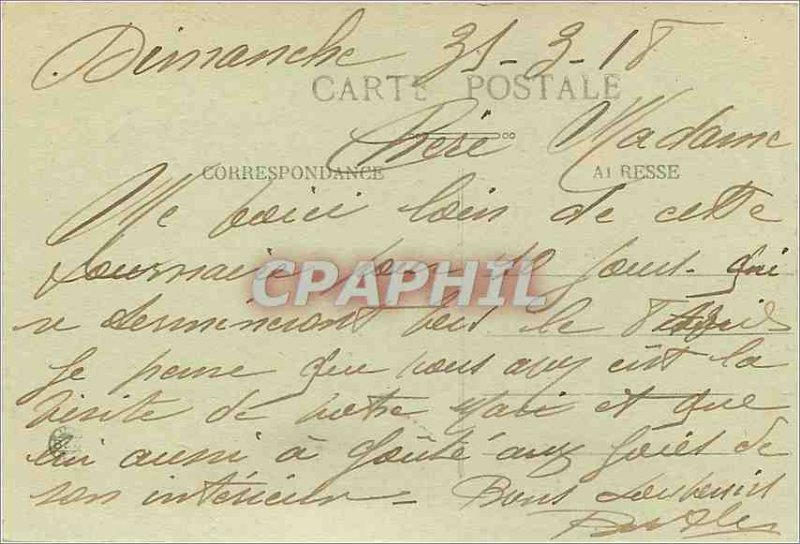 Dimanche 31-3-18
CARTE POSTALE
Chère Madame
CORRESPONDANCE
ADRESSE
Me voici loin de cette
fournaise pour 10 jours qui
se termineront vers le 8
CPAPHIL
je pense que vous avez eût la
visite de votre Mari et que
lui aussi à goûté aux joies de
son intérieur - Bons Souvenirs